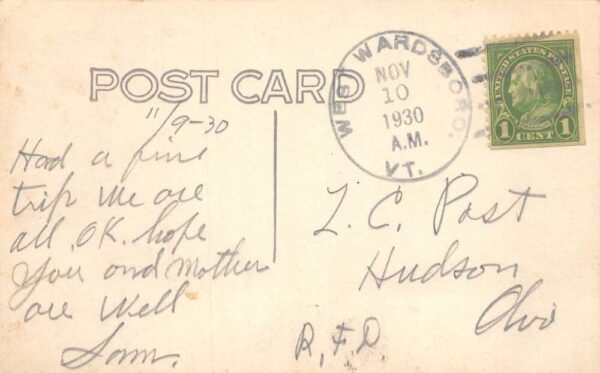 POST CARD
WEST WARDSBORO.
NOV
10
1930
A.M.
VT.
UNITED STATES POSTAGE
1 CENT 1
11/9-30
Had a fine
trip We are
all OK. hope
you and Mother
are Well
Sam.
L. C. Post
Hudson
Ohio
R.F.D.